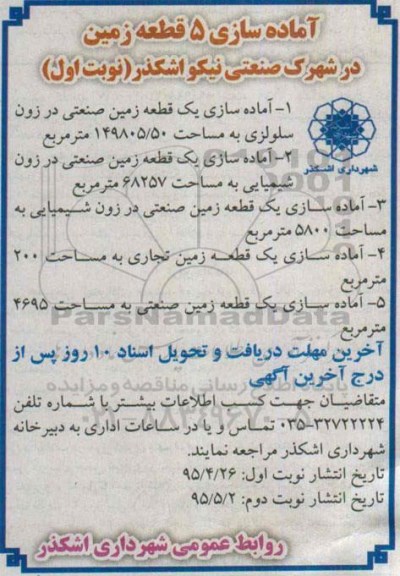 آماده سازی ۵ قطعه زمین
در شهرک صنعتی نیکو اشکذر (نوبت اول)
شهرداری اشکذر
۱- آماده سازی یک قطعه زمین صنعتی در زون
سلولزی به مساحت ۱۴۹۸۰۵/۵۰ مترمربع
۲- آماده سازی یک قطعه زمین صنعتی در زون
شیمیایی به مساحت ۶۸۲۵۷ مترمربع
۳- آماده سازی یک قطعه زمین صنعتی در زون شیمیایی به
مساحت ۵۸۰۰ مترمربع
۴- آماده سازی یک قطعه زمین تجاری به مساحت ۲۰۰
مترمربع
۵- آماده سازی یک قطعه زمین صنعتی به مساحت ۴۶۹۵
مترمربع
آخرین مهلت دریافت و تحویل اسناد ۱۰ روز پس از
درج آخرین آگهی
متقاضیان جهت کسب اطلاعات بیشتر با شماره تلفن
۰۳۵-۳۲۷۲۲۲۲۴ تماس و یا در ساعات اداری به دبیرخانه
شهرداری اشکذر مراجعه نمایند.
تاریخ انتشار نوبت اول: ۹۵/۴/۲۶
تاریخ انتشار نوبت دوم: ۹۵/۵/۲
روابط عمومی شهرداری اشکذر
ParsNamadData